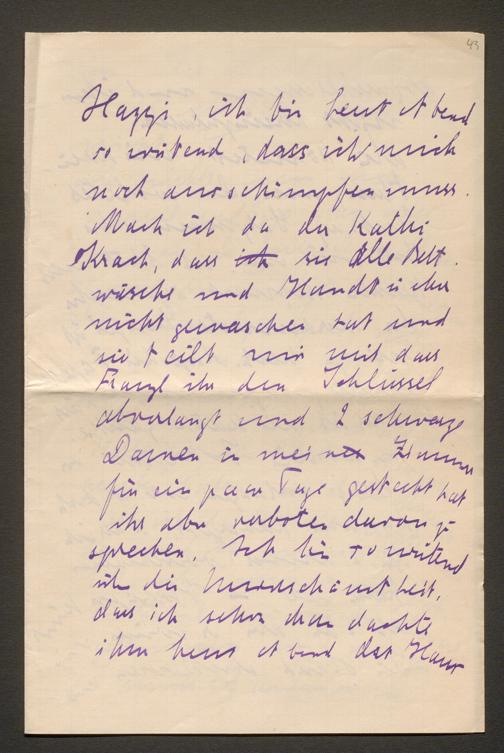 43
Hazzi, ich bin heut Abend
so wütend, dass ich mich
noch ausschimpfen muss.
Mach ich da der Kathi
Krach, dass ich sie alle Bett
wäsche und Handtücher
nicht gewaschen hat und
sie teilt mir mit dass
Franzl ihr den Schlüssel
abverlangt und 2 schwarze
Damen in mein Zimmer
für ein paar Tage gesteckt hat
ihr aber verboten davon zu
sprechen. Ich bin so wütend
über die Unverschämtheit,
dass ich schon dran dachte
ihm heut Abend das Haus